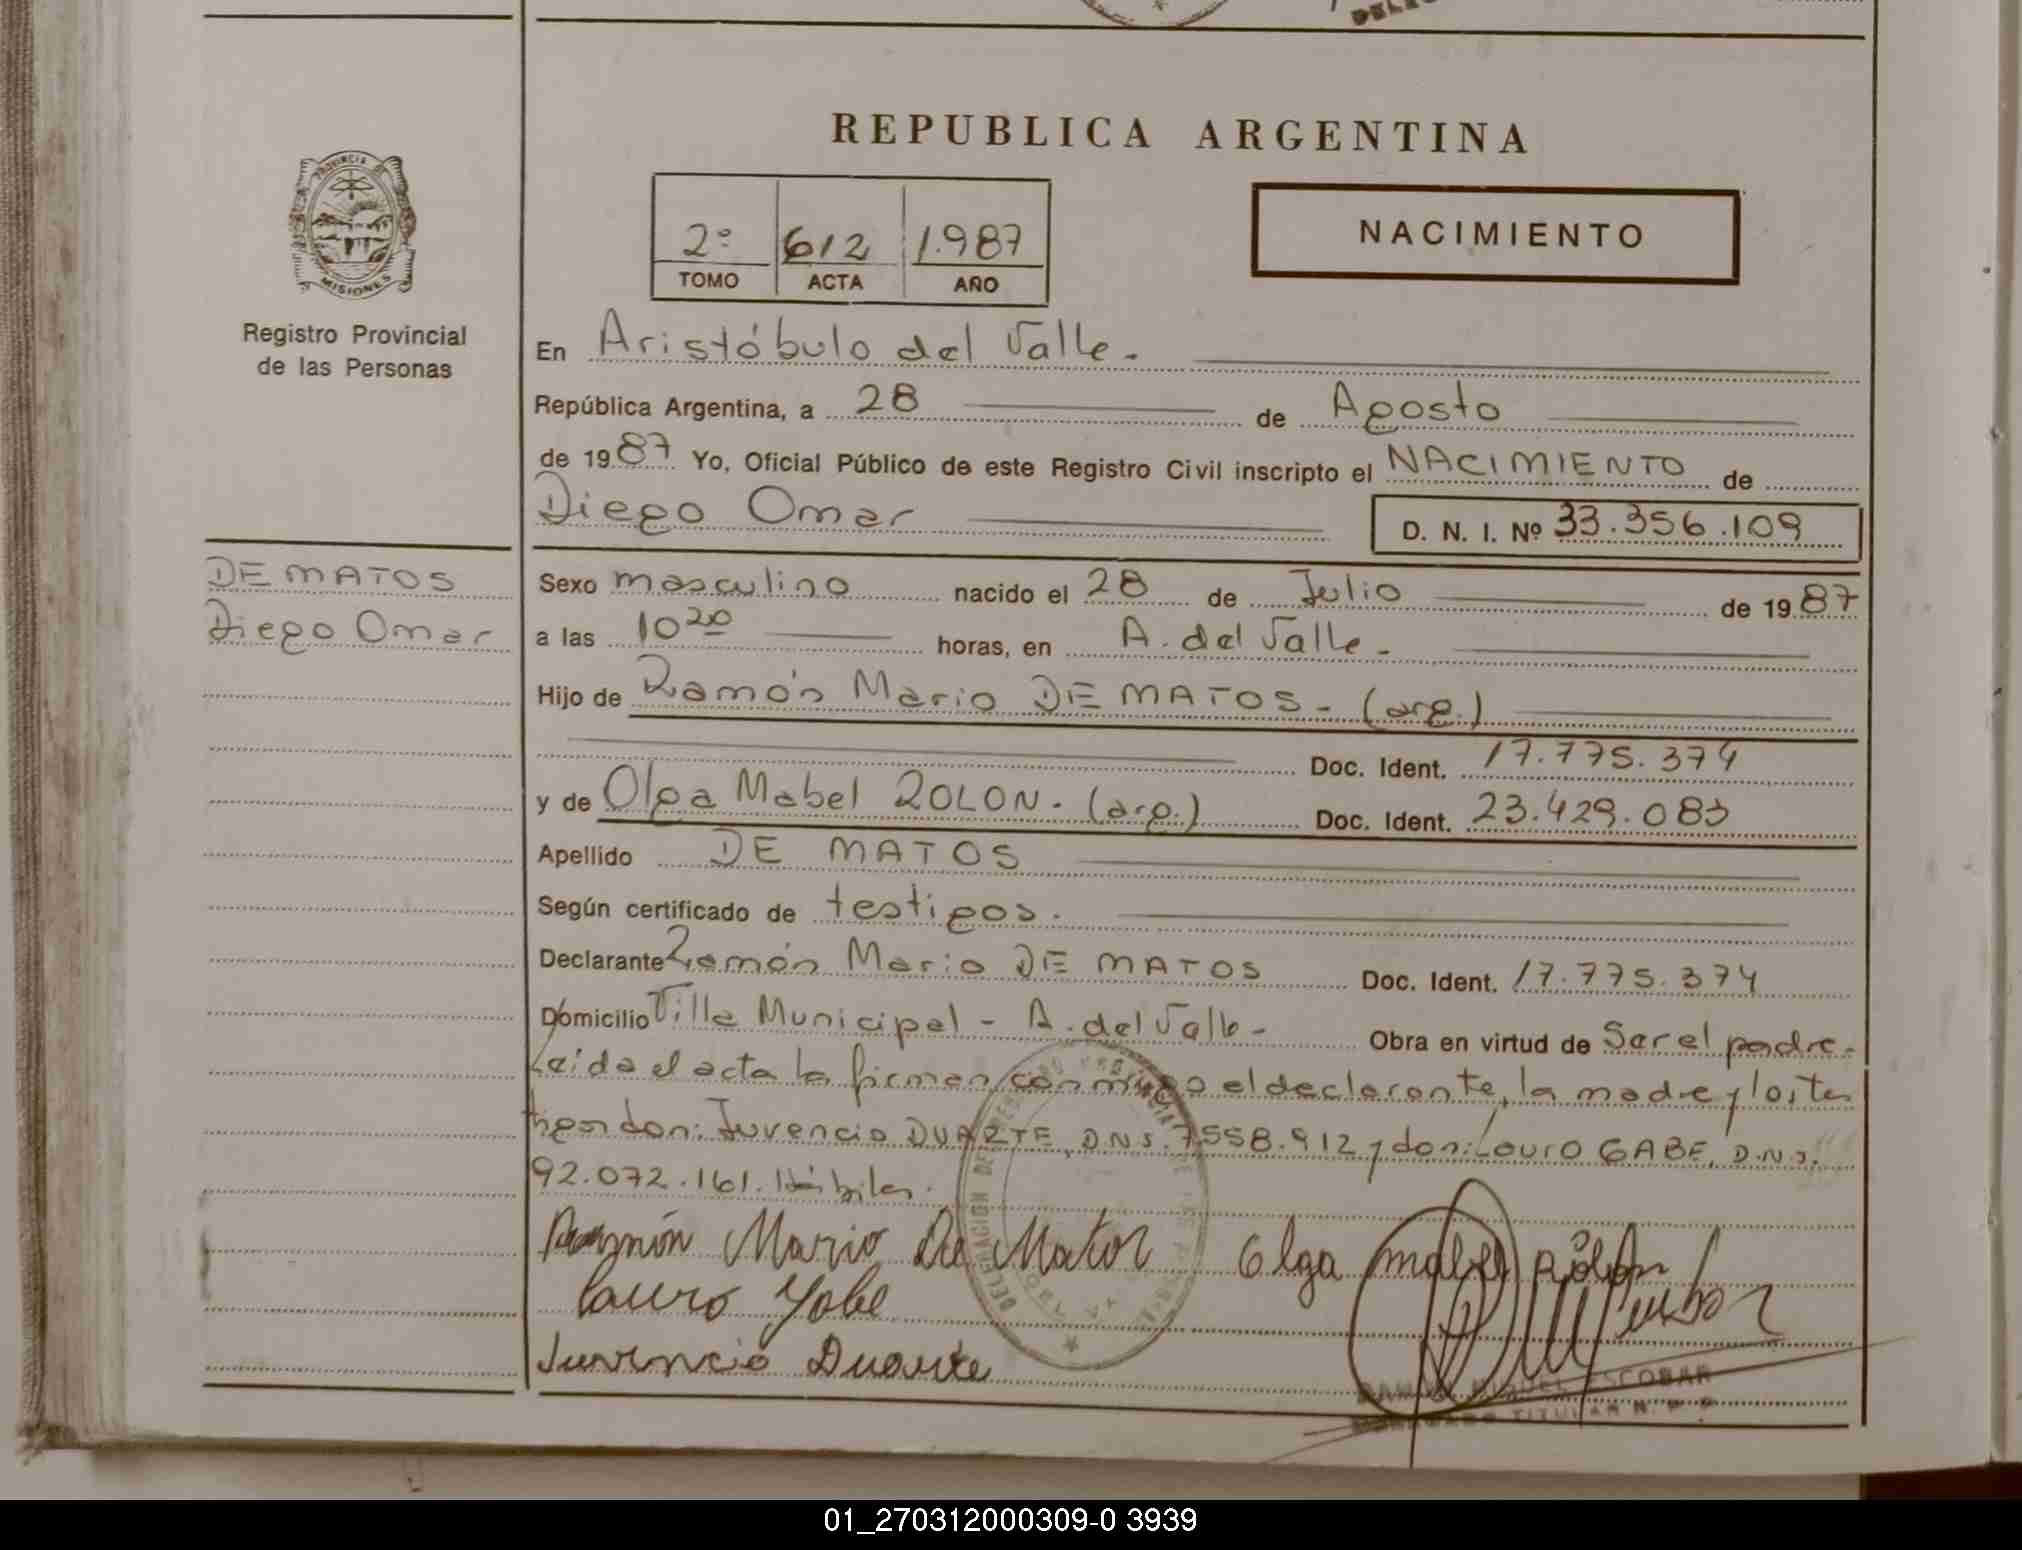 REPUBLICA ARGENTINA
PROVINCIA DE
MISIONES
Registro Provincial
de las Personas
2º 612 1.987
TOMO ACTA AÑO
NACIMIENTO
En Aristóbulo del Valle.
República Argentina, a 28 de Agosto
de 1987 Yo, Oficial Público de este Registro Civil inscripto el NACIMIENTO de
Diego Omar D. N. I. Nº 33.356.109
DE MATOS
Diego Omar
Sexo masculino nacido el 28 de Julio de 1987
a las 10 20 horas, en A. del Valle.
Hijo de Ramón Mario DE MATOS. (arg.)
Doc. Ident. 17.775.374
y de Olga Mabel ROLON. (arg.) Doc. Ident. 23.429.083
Apellido DE MATOS
Según certificado de testigos.
Declarante Ramón Mario DE MATOS Doc. Ident. 17.775.374
Domicilio Villa Municipal - A. del Valle - Obra en virtud de Ser el padre.
Leida el acta la firman conmigo el declarante, la madre y los tes
tigos don: Juvencio DUARTE, D.N.I. 7.558.912 y don: Lauro GABE, D.N.I.
92.072.161. Hábiles.
Ramón Mario De Matos Olga mabel Rolon
Lauro Gabe
Juvencio Duarte
MIGUEL ESCOBAR
TITULAR
01_270312000309-0 3939